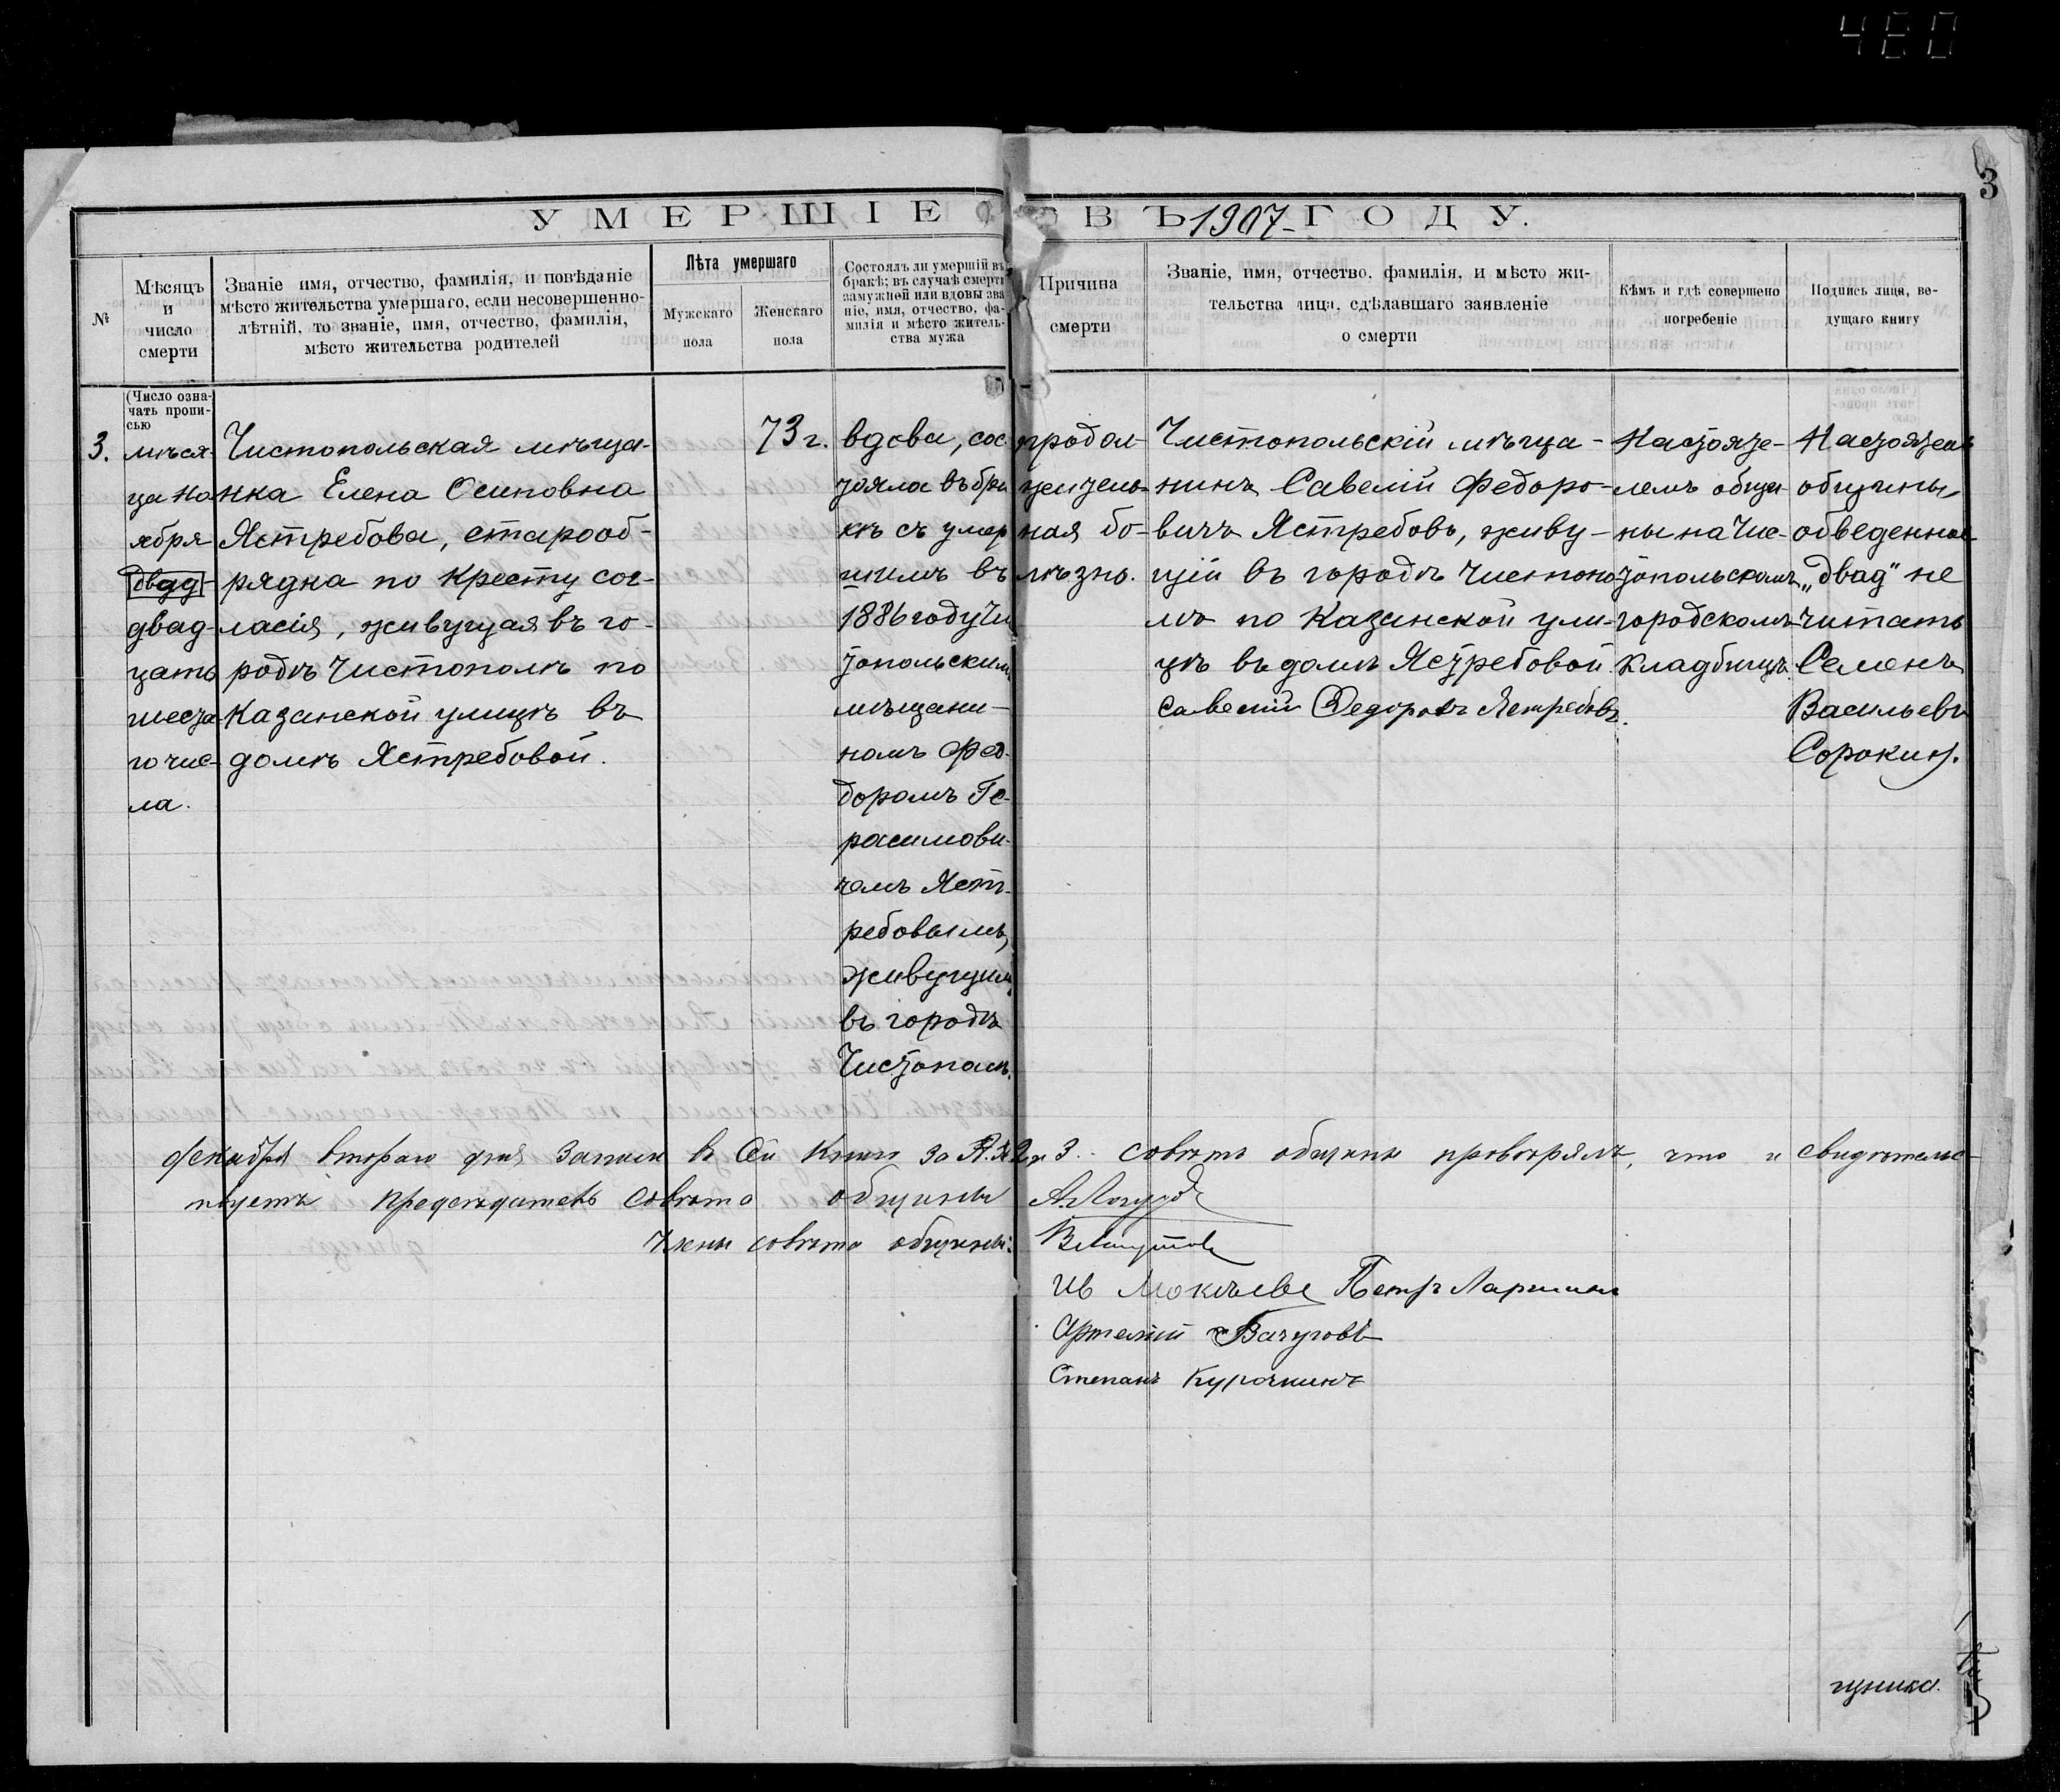 480
3
УМЕРШІЕ ВЪ 1907 ГОДУ.
№
Мѣсяцъ
и
число
смерти
Званіе имя, отчество, фамилія, и повѣданіе
мѣсто жительства умершаго, если несовершенно-
лѣтній, то званіе, имя, отчество, фамилія,
мѣсто жительства родителей
Лѣта умершаго
Мужскаго
пола
Женскаго
пола
Состоялъ ли умершій въ
бракѣ; въ случаѣ смерти
замужней или вдовы зва
ніе, имя, отчество, фа-
милія и мѣсто житель-
ства мужа
Причина
смерти
Званіе, имя, отчество, фамилія, и мѣсто жи-
тельства лица, сдѣлавшаго заявленіе
о смерти
Кѣмъ и гдѣ совершено
погребеніе
Подпись лица, ве-
дущаго книгу
(Число озна-
чать пропи-
сью
3.
мѣся-
ца но
ября
двад
двад-
цать
шеста
го чис-
ла.
Чистопольская мѣща-
нка Елена Осиповна
Ястребова, старооб-
рядка по Кресту сог-
ласія, живущая въ го-
родѣ Чистополѣ по
Казанской улицѣ въ
домѣ Ястребовой.
73 г.
вдова, сос
тояла въ бра
кѣ съ умер
шимъ въ
1886 году Чис
топольскимъ
мѣщани-
номъ Фео-
доромъ Ге-
расимови-
чемъ Яст-
ребовымъ,
живущимъ
въ городѣ
Чистополѣ.
продол-
житель-
ная бо-
лѣзнь.
Чистопольскій мѣща-
нинъ Савелій Федоро-
вичъ Ястребовъ, живу-
щій въ городѣ Чистопо
лѣ по Казанской ули-
цѣ въ домѣ Ястребовой
Савелий Федоровъ Ястребовъ.
Настояте-
лемъ общи
ны на Чис-
топольскомъ
городскомъ
кладбищѣ.
Настоятель
общины
обведенное
„двад" не
читать
Семенъ
Васильевъ
Сорокинъ.
декабря втораго дня записи въ сей книге за № 2 и 3. совѣтъ общины провѣрялъ, что и свидѣтельс-
твуетъ Председатель Совѣта общины
Члены совѣта общины:
Ив Мокѣевъ Петръ Ларинъ
Артемий Вачуговъ
Степанъ Курочкинъ